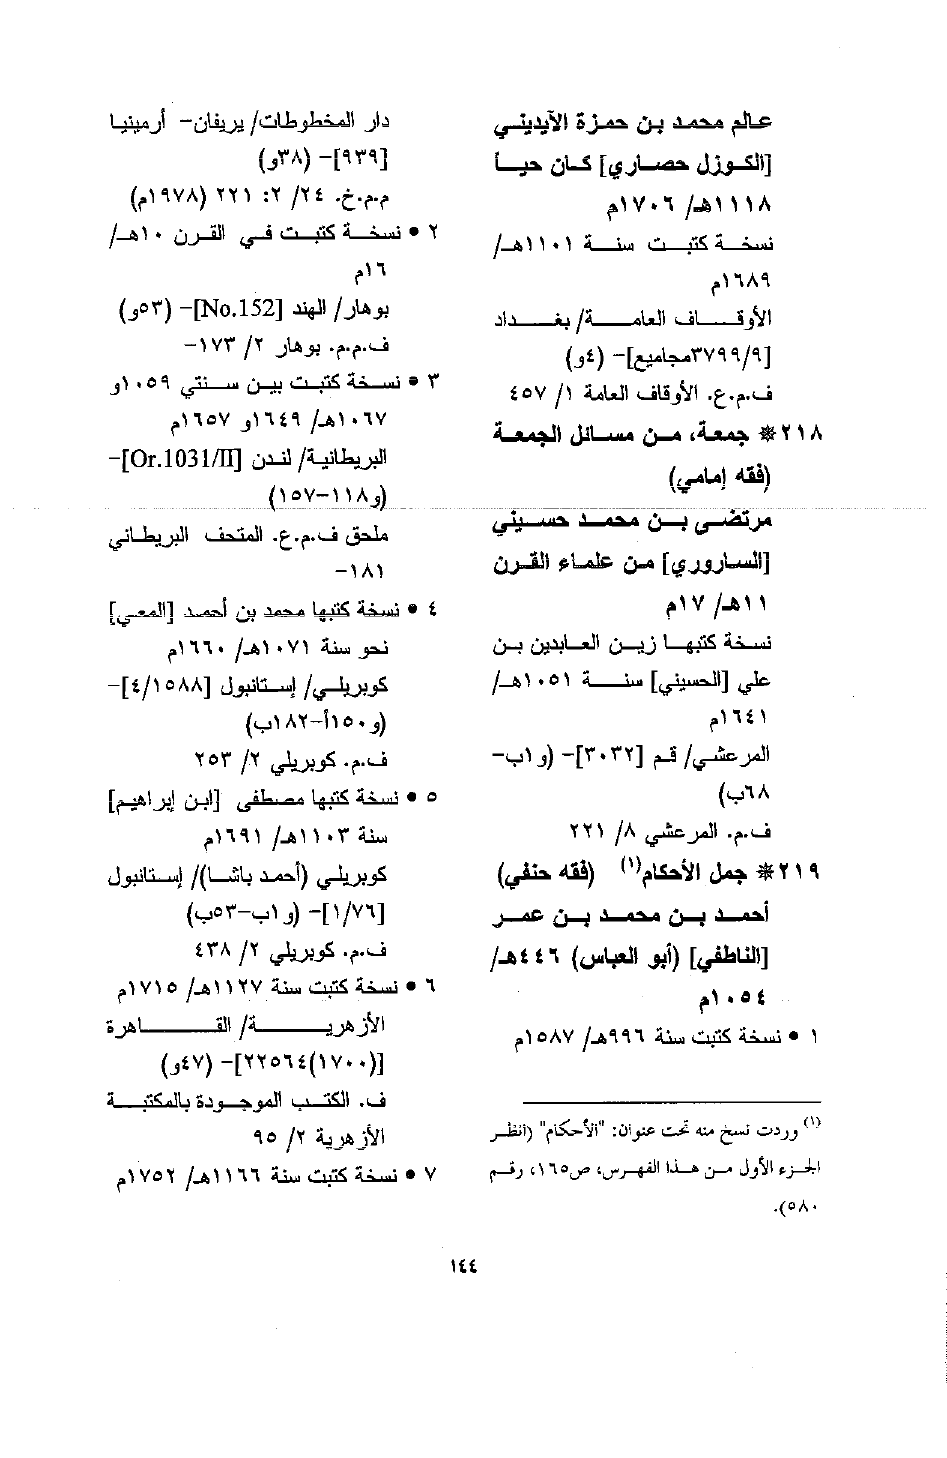 عالم محمد بن حمزة الآيديني
[الكوزل حصاري] كان حياً
١١١٨هـ/ ١٧٠٦م
نسخة كتبت سنة ١١٠١هـ/
١٦٨٩م
الأوقاف العامة/ بغداد
[٣٧٩٩/٩مجاميع]– (٤و)
ف.م.ع. الأوقاف العامة ١/ ٤٥٧
٢١٨* جمعة، من مسائل الجمعة
(فقه إمامي)
مرتضى بن محمد حسيني
[الساروري] من علماء القرن
١١هـ/ ١٧م
نسخة كتبها زين العابدين بن
علي [الحسيني] سنة ١٠٥١هـ/
١٦٤١م
المرعشي/ قم [٣٠٣٢]– (و١ب–
٦٨ب)
ف.م. المرعشي ٨/ ٢٢١
٢١٩* جمل الأحكام(١) (فقه حنفي)
أحمد بن محمد بن عمر
[الناطفي] (أبو العباس) ٤٤٦هـ/
١٠٥٤م
١ • نسخة كتبت سنة ٩٩٦هـ/ ١٥٨٧م
(١) وردت نسخ منه تحت عنوان: "الأحكام" (انظر
الجزء الأول من هذا الفهرس، ص١٦٥، رقم
٥٨٠).
دار المخطوطات/ يريفان– أرمينيا
[٩٣٩]– (٣٨و)
م.م.خ. ٢٤/ ٢: ٢٢١ (١٩٧٨م)
٢ • نسخة كتبت في القرن ١٠هـ/
١٦م
بوهار/ الهند [No.152]– (٥٣و)
ف.م.م. بوهار ٢/ ١٧٣–
٣ • نسخة كتبت بين سنتي ١٠٥٩و
١٠٦٧هـ/ ١٦٤٩و ١٦٥٧م
البريطانية/ لندن [Or.1031/II]–
(و١١٨–١٥٧)
ملحق ف.م.ع. المتحف البريطاني
١٨١–
٤ • نسخة كتبها محمد بن أحمد [المعي]
نحو سنة ١٠٧١هـ/ ١٦٦٠م
كوبريلي/ إستانبول [٤/١٥٨٨]–
(و١٥٠أ–١٨٢ب)
ف.م. كوبريلي ٢/ ٢٥٣
٥ • نسخة كتبها مصطفى [ابن إبراهيم]
سنة ١١٠٣هـ/ ١٦٩١م
كوبريلي (أحمد باشا)/ إستانبول
[١/٧٦]– (و١ب–٥٣ب)
ف.م. كوبريلي ٢/ ٤٣٨
٦ • نسخة كتبت سنة ١١٢٧هـ/ ١٧١٥م
الأزهرية/ القاهرة
[(١٧٠٠)٢٢٥٦٤]– (٤٧و)
ف. الكتب الموجودة بالمكتبة
الأزهرية ٢/ ٩٥
٧ • نسخة كتبت سنة ١١٦٦هـ/ ١٧٥٢م
١٤٤